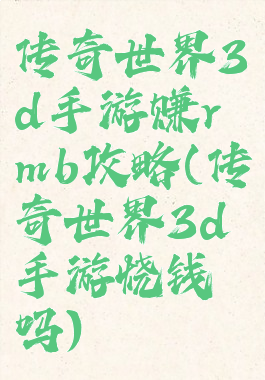 传奇世界3
d手游赚r
mb攻略(传
奇世界3d
手游烧钱
吗)